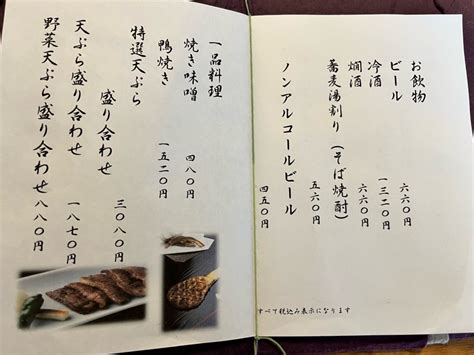 お飲物
ビール 六六〇円
冷酒 一三二〇円
燗酒 六六〇円
蕎麦湯割り(そば焼酎) 五六〇円
ノンアルコールビール 四五〇円
すべて税込み表示になります
一品料理
焼き味噌 四八〇円
鴨焼き 一五二〇円
特選天ぷら
盛り合わせ 三〇八〇円
天ぷら盛り合わせ 一八七〇円
野菜天ぷら盛り合わせ